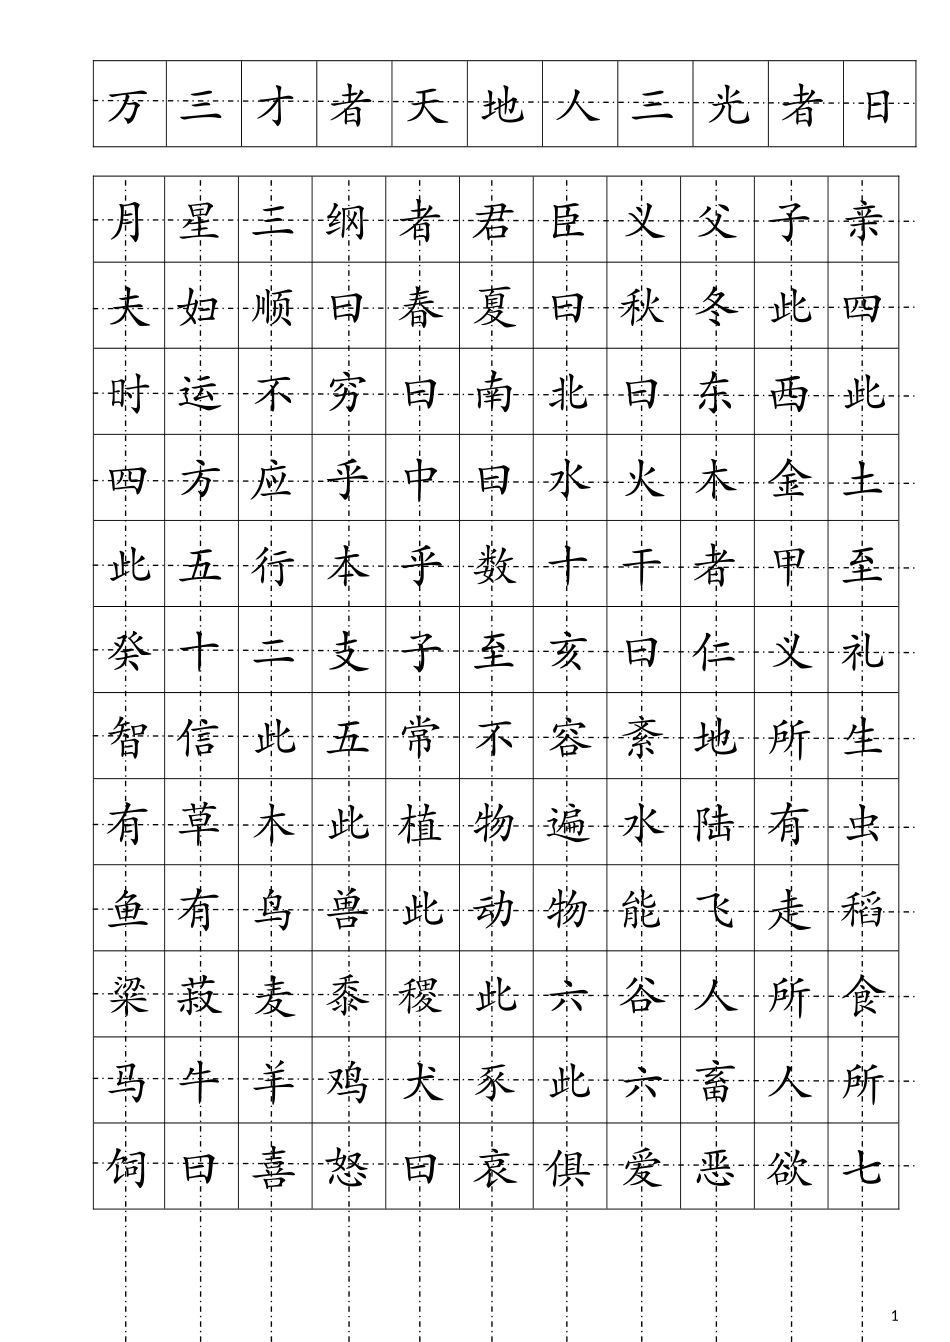 万三才者天地人三光者日
月星三纲者君臣义父子亲
夫妇顺曰春夏曰秋冬此四
时运不穷曰南北曰东西此
四方应乎中曰水火木金土
此五行本乎数十干者甲至
癸十二支子至亥曰仁义礼
智信此五常不容紊地所生
有草木此植物遍水陆有虫
鱼有鸟兽此动物能飞走稻
梁菽麦黍稷此六谷人所食
马牛羊鸡犬豕此六畜人所
饲曰喜怒曰哀俱爱恶欲七
1